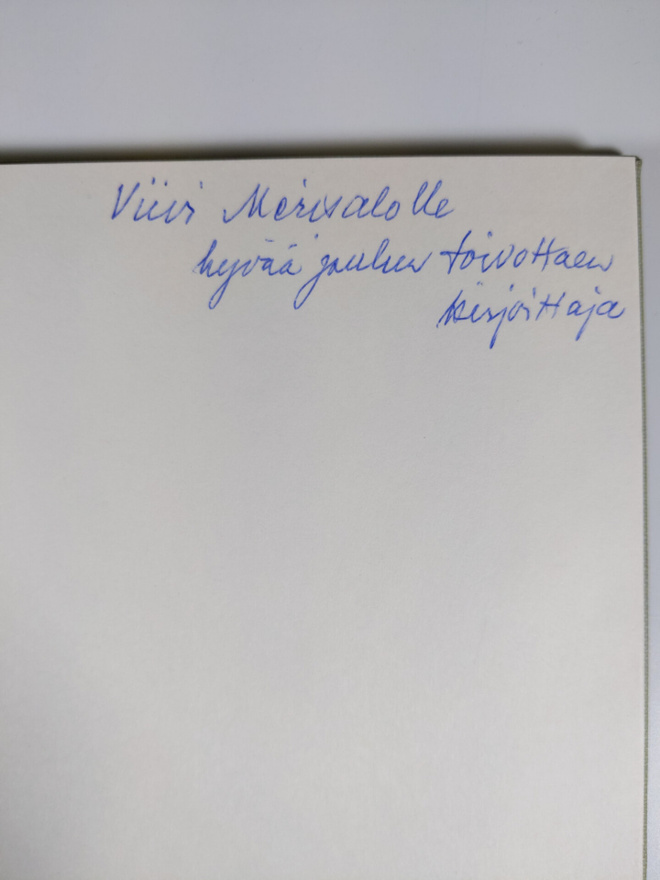 Viivi Merisalolle
hyvää joulua toivottaen
kirjoittaja